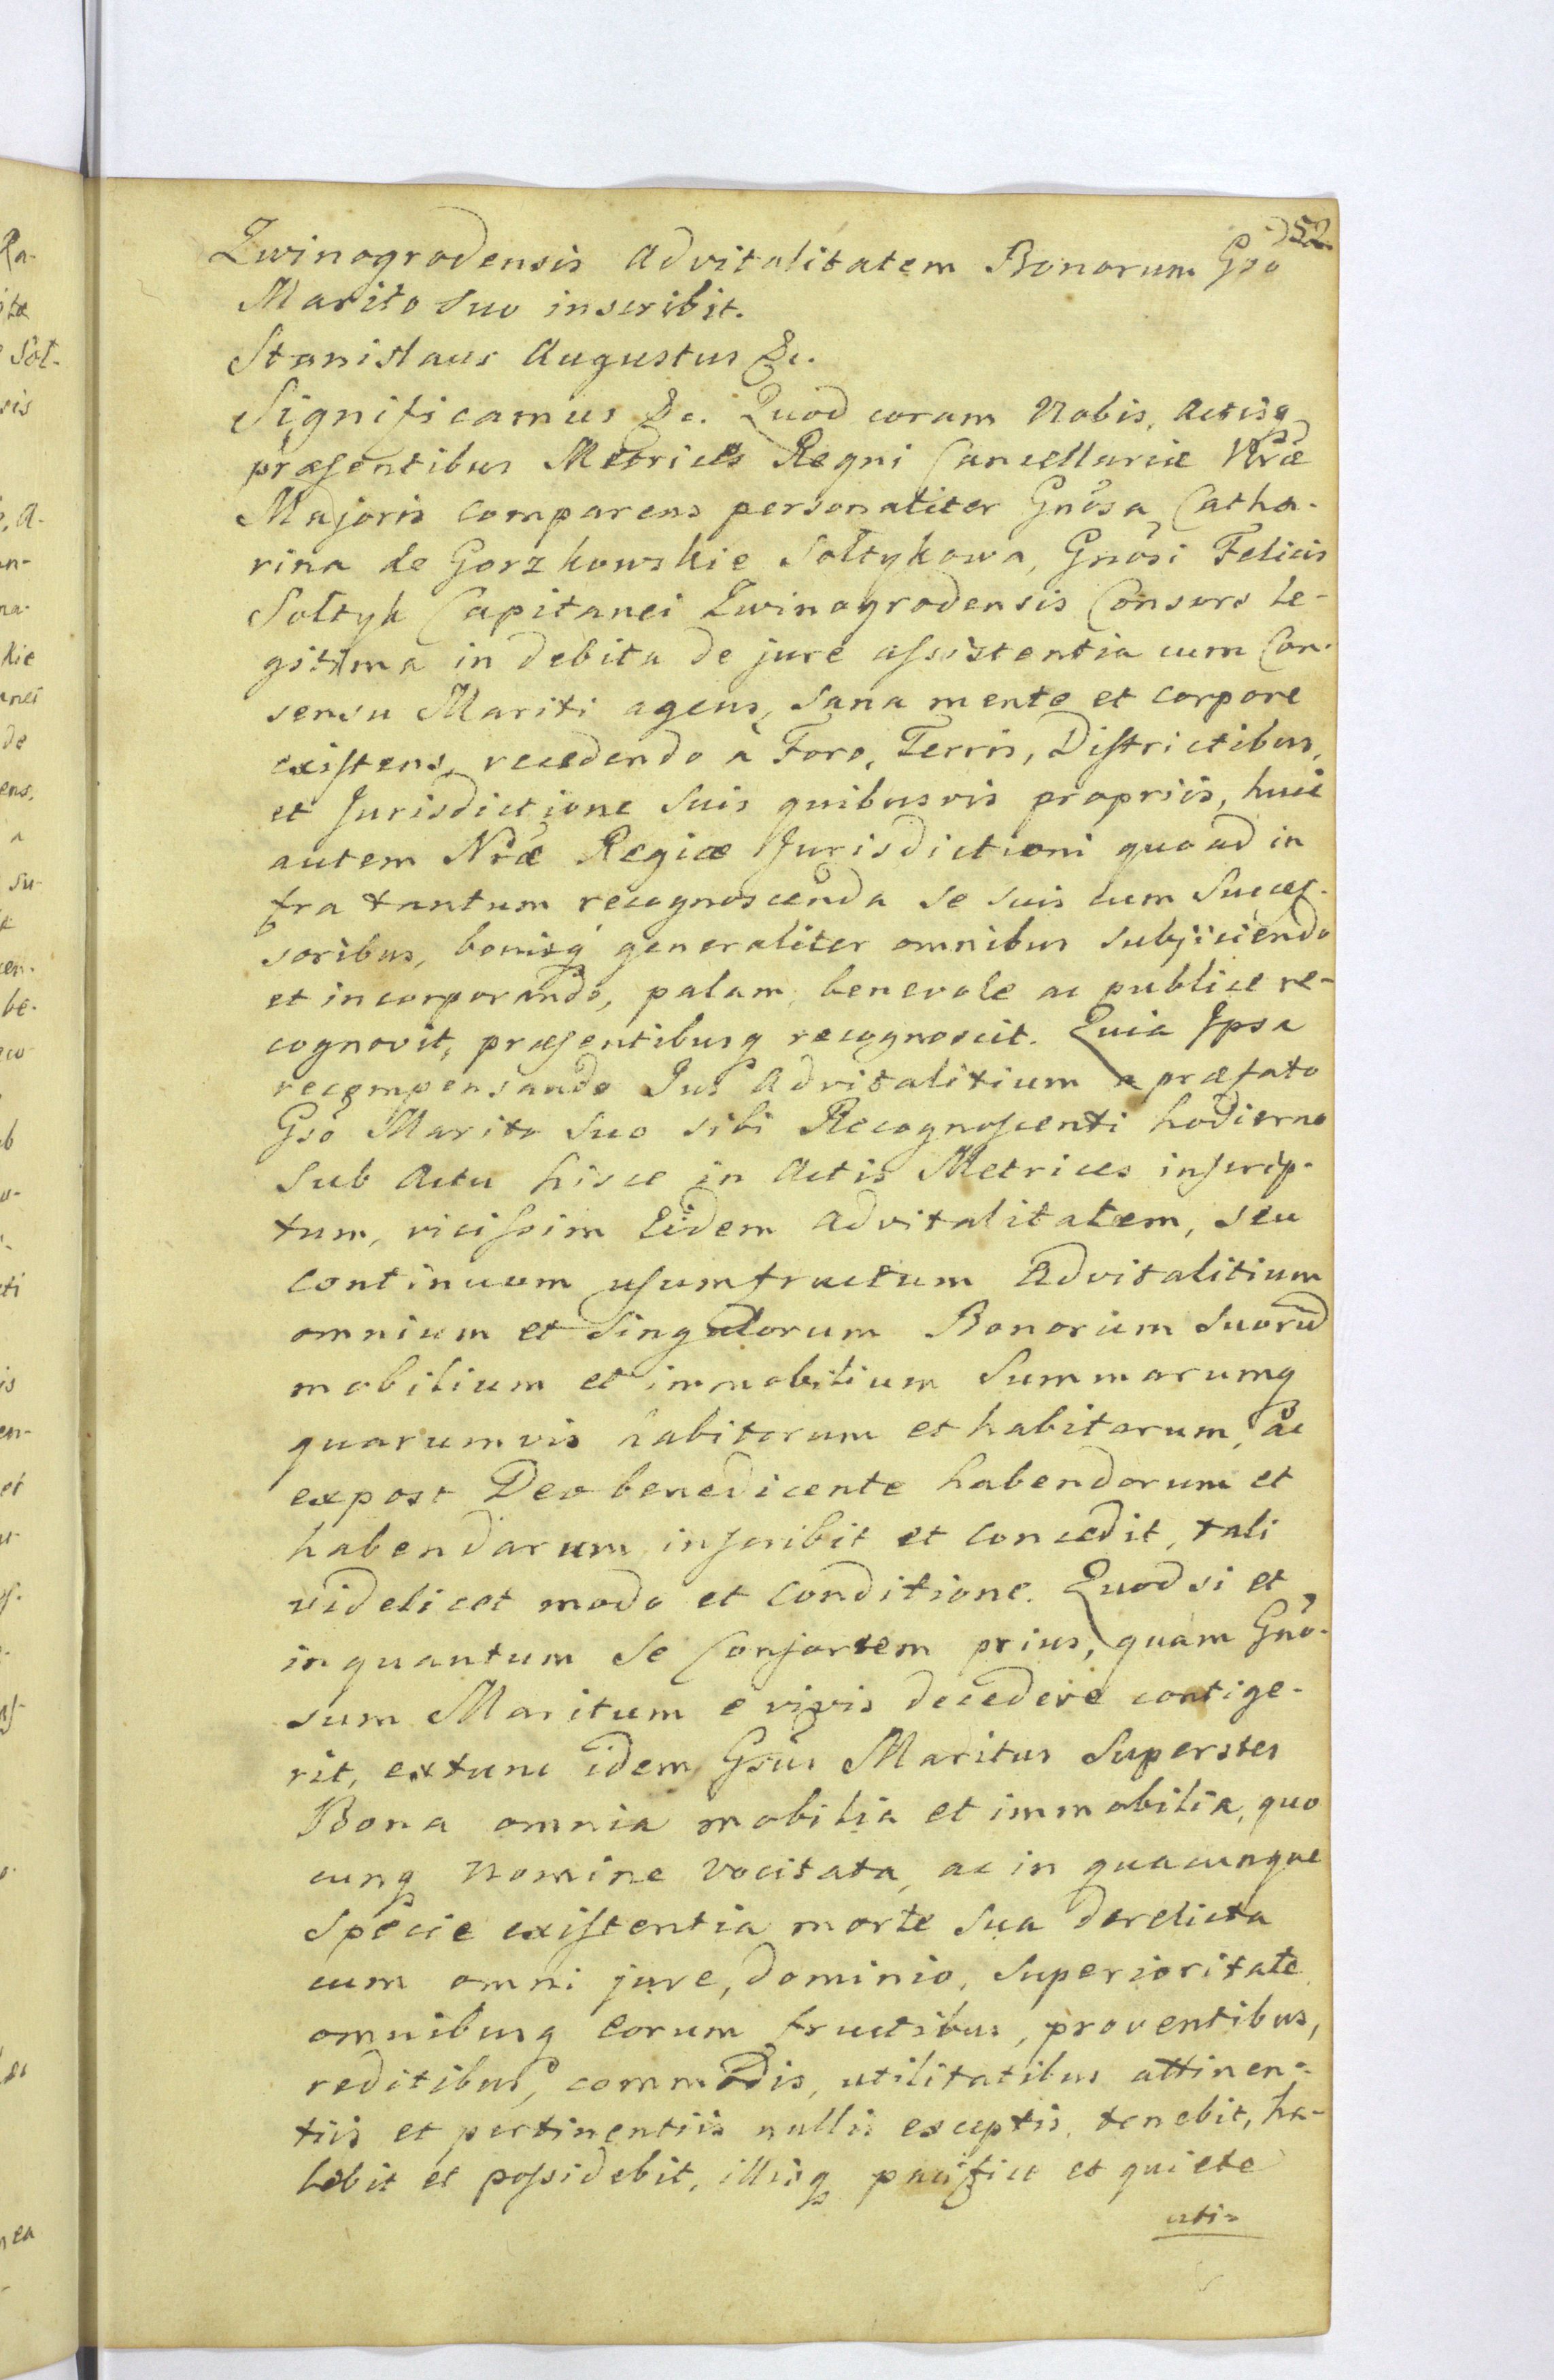 52
Zwinogrodensis Advitalitatem Bonorum Gso
Marito Suo inscribit.
Stanislaus Augustus &c.
Significamus &c. Quod coram Nobis, Actisq
præsentibus Metrices Regni Cancellariæ Nræ
Majoris comparens personaliter Gnosa Catha-
rina de Gorzkowskie Sołtykowa, Gnosi Felicis
Sołtyk Capitanei Zwinogrodensis Consors le-
gitima in debita de jure assistentia cum Con-
sensu Mariti agens, sana mente et corpore
existens, recedendo à Foro, Terris, Districtibus,
et Jurisdictione Suis quibusvis propriis, huic
autem Nræ Regiæ Jurisdictioni quoad in
fra tantum recognoscenda se suis cum Succes-
soribus, bonisq generaliter omnibus subjiciendo
et incorporando, palam, benevole ac publice re-
cognovit, præsentibusq recognoscit. Quia Ipsa
recompensando Jus Advitalitium a præfato
Gso Marito Suo sibi Recognoscenti hodierno
Sub Actu hisce in Actis Metrices inscrip-
tum, vicissim Eidem Advitalitatem, seu
continuum usumfructum Advitalitium
omnium et Singulorum Bonorum Suorũ
mobilium et immobilium Summarumq
quarumvis habitorum et habitarum, ac
expost Deo benedicente habendorum et
habendarum inscribit et concedit, tali
videlicet modo et conditione. Quod si et
inquantum Se Consortem prius, quàm Gno-
sum Maritum e vivis decedere contige-
rit, extunc idem Gsus Maritus Superstes
Bona omnia mobilia et immobilia, quo
cunq nomine vocitata, ac in quacunque
Specie existentia morte Sua derelicta
cum omni jure, dominio, Superioritate,
omnibusq eorum fructibus, proventibus,
reditibus, commodis, utilitatibus attinen-
tiis et pertinentiis nullis exceptis, tenebit, ha-
bebit et possidebit, illisq pacifice et quiete
uti-